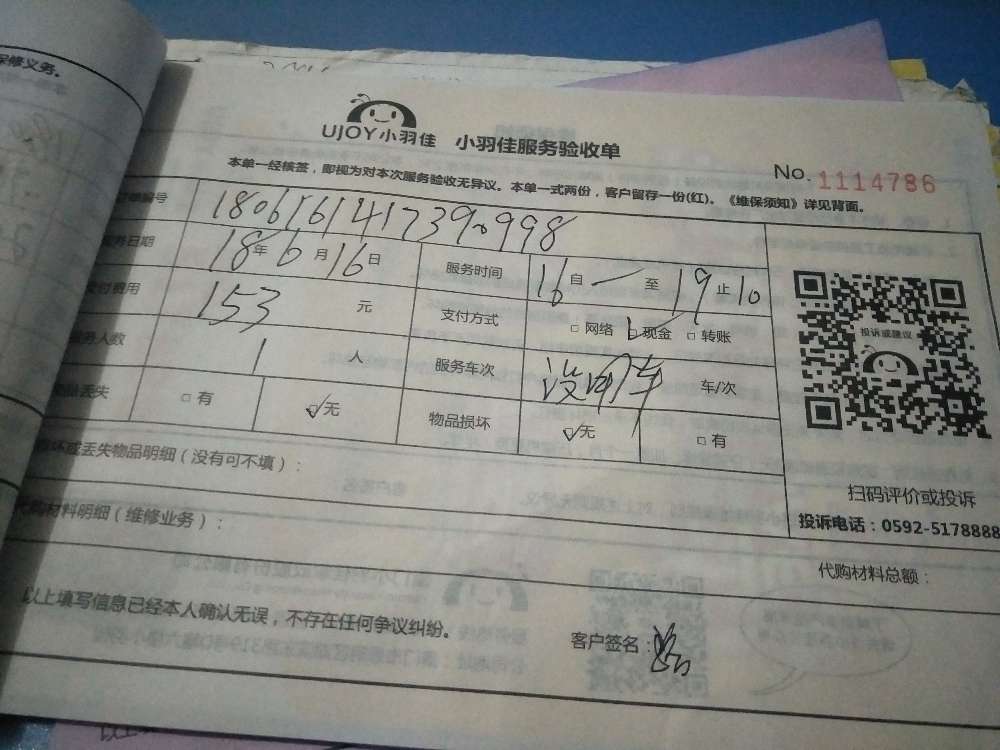 保修义务。
UJOY小羽佳 小羽佳服务验收单
No. 1114786
本单一经核签，即视为对本次服务验收无异议。本单一式两份，客户留存一份(红)。《维保须知》详见背面。
编号 180616141739
日期 18年6月16日 服务时间 16自一至19止10
费用 153元 支付方式 □网络 ☑现金 □转账
人数 1人 服务车次 没用车 车/次
丢失 □有 ☑无 物品损坏 ☑无 □有
投诉或建议
扫码评价或投诉
投诉电话：0592-5178888
坏或丢失物品明细（没有可不填）：
代购材料明细（维修业务）：
代购材料总额：
以上填写信息已经本人确认无误，不存在任何争议纠纷。
客户签名：